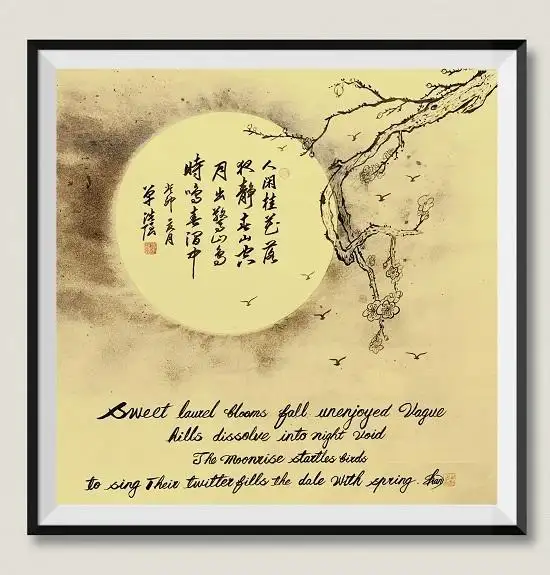 人闲桂花落
夜静春山空
月出驚山鳥
時鳴春澗中
癸卯 月
Sweet laurel blooms fall unenjoyed Vague
hills dissolve into night void
The Moonrise startles birds
to sing Their twitter fills the dale With spring.